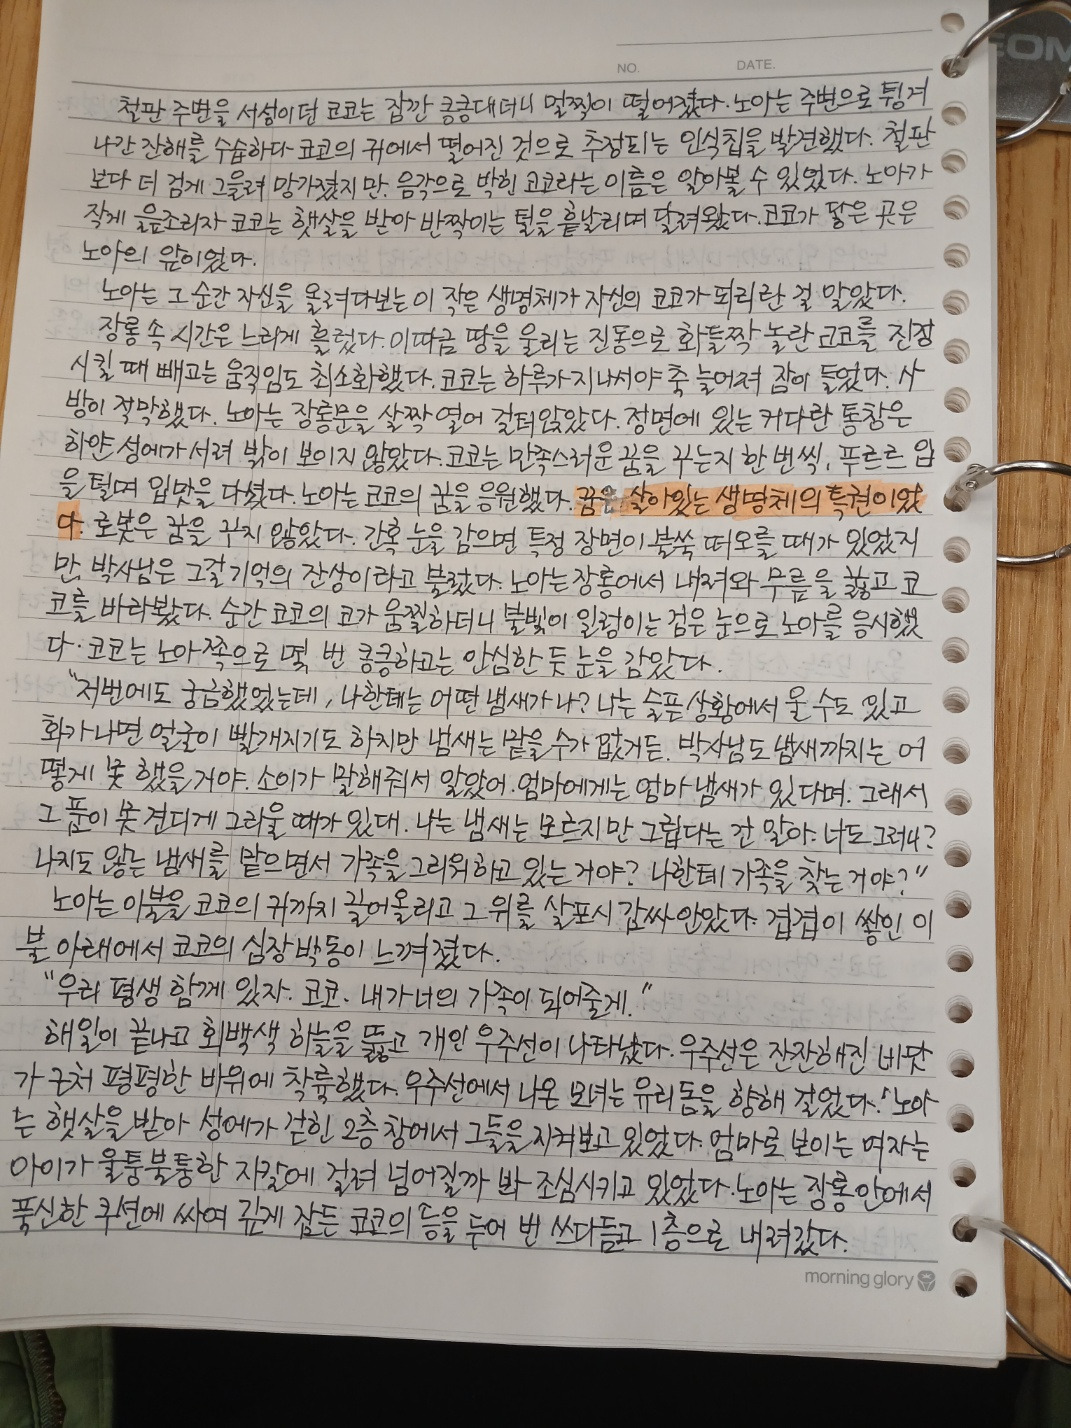 NO. DATE.
철판 주변을 서성이던 코코는 잠깐 킁킁대더니 멀찍이 떨어졌다. 노아는 주변으로 튕겨
나간 잔해를 수습하다 코코의 귀에서 떨어진 것으로 추정되는 인식칩을 발견했다. 철판
보다 더 검게 그을려 망가졌지만, 음각으로 박힌 코코라는 이름은 알아볼 수 있었다. 노아가
작게 읊조리자 코코는 햇살을 받아 반짝이는 털을 흩날리며 달려왔다. 코코가 닿은 곳은
노아의 앞이었다.
노아는 그 순간 자신을 올려다보는 이 작은 생명체가 자신의 코코가 되리란 걸 알았다.
장롱 속 시간은 느리게 흘렀다. 이따금 땅을 울리는 진동으로 화들짝 놀란 코코를 진정
시킬 때 빼고는 움직임도 최소화했다. 코코는 하루가 지나서야 축 늘어져 잠이 들었다. 사
방이 적막했다. 노아는 장롱문을 살짝 열어 걸터앉았다. 정면에 있는 커다란 통창은
하얀 성에가 서려 밖이 보이지 않았다. 코코는 만족스러운 꿈을 꾸는지 한 번씩, 푸르르 입
을 털며 입맛을 다셨다. 노아는 코코의 꿈을 응원했다. 꿈은 살아있는 생명체의 특권이었
다. 로봇은 꿈을 꾸지 않았다. 간혹 눈을 감으면 특정 장면이 불쑥 떠오를 때가 있었지
만, 박사님은 그걸 기억의 잔상이라고 불렀다. 노아는 장롱에서 내려와 무릎을 꿇고 코
코를 바라봤다. 순간 코코의 코가 움찔하더니 불빛이 일렁이는 검은 눈으로 노아를 응시했
다. 코코는 노아 쪽으로 몇 번 킁킁하고는 안심한 듯 눈을 감았다.
"저번에도 궁금했었는데, 나한테는 어떤 냄새가 나? 나는 슬픈 상황에서 울 수도 있고
화가 나면 얼굴이 빨개지기도 하지만 냄새는 맡을 수가 없거든. 박사님도 냄새까지는 어
떻게 못 했을 거야. 소이가 말해줘서 알았어. 엄마에게는 엄마 냄새가 있다며. 그래서
그 품이 못 견디게 그리울 때가 있대. 나는 냄새는 모르지만 그립다는 건 알아. 너도 그러니?
나지도 않는 냄새를 맡으면서 가족을 그리워하고 있는 거야? 나한테 가족을 찾는 거야?"
노아는 이불을 코코의 귀까지 끌어올리고 그 위를 살포시 감싸 안았다. 겹겹이 쌓인 이
불 아래에서 코코의 심장 박동이 느껴졌다.
"우리 평생 함께 있자. 코코. 내가 너의 가족이 되어줄게."
해일이 끝나고 회백색 하늘을 뚫고 개인 우주선이 나타났다. 우주선은 잔잔해진 바닷
가 근처 평평한 바위에 착륙했다. 우주선에서 나온 모녀는 유리돔을 향해 걸었다. 노아
는 햇살을 받아 성에가 걷힌 2층 창에서 그들을 지켜보고 있었다. 엄마로 보이는 여자는
아이가 울퉁불퉁한 자갈에 걸려 넘어질까 봐 조심시키고 있었다. 노아는 장롱 안에서
푹신한 쿠션에 싸여 깊게 잠든 코코의 등을 두어 번 쓰다듬고 1층으로 내려갔다.
morning glory